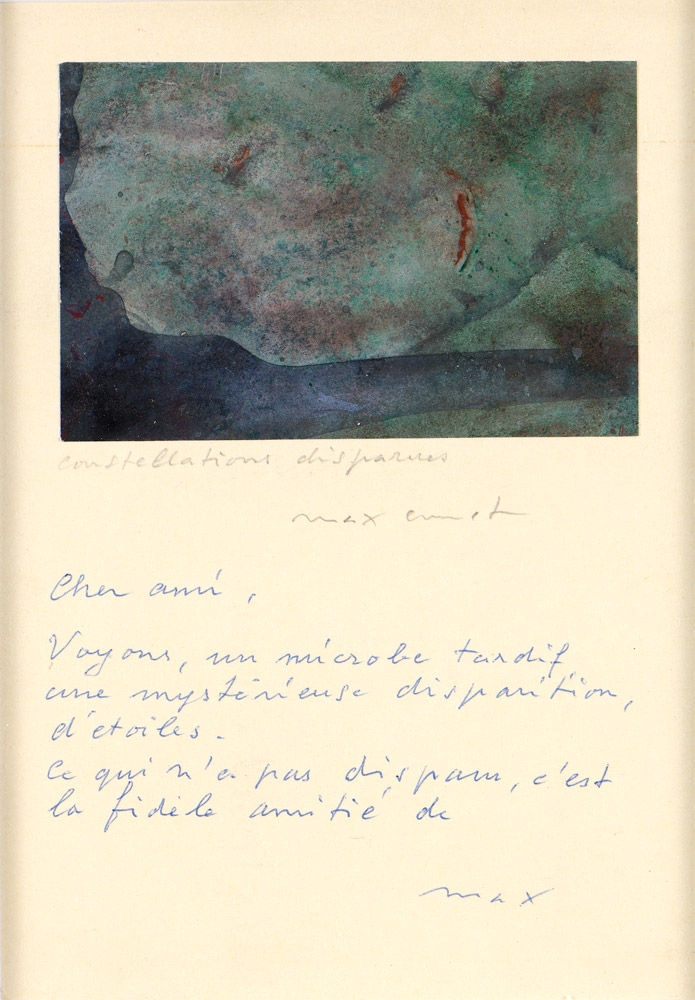 constellations disparues
max ernst
Cher ami,
Voyons, un microbe tardif
une mystérieuse disparition,
d'étoiles.
Ce qui n'a pas disparu, c'est
la fidèle amitié de
max